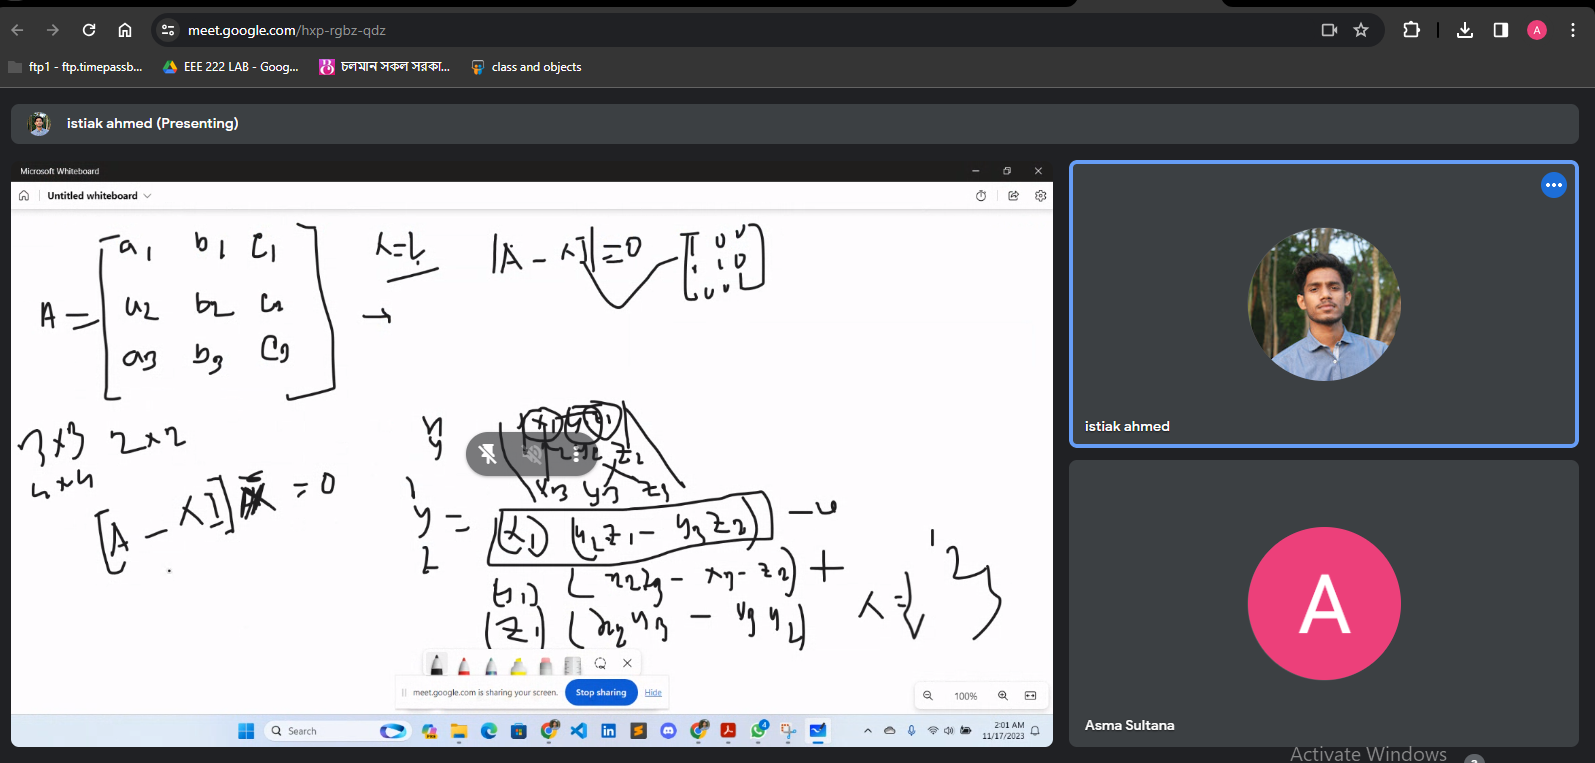 meet.google.com/hxp-rgbz-qdz
A
ftp1 - ftp.timepassb...
EEE 222 LAB - Goog...
চলমান সকল সরকা...
class and objects
istiak ahmed (Presenting)
Microsoft Whiteboard
Untitled whiteboard
a1 b1 C1
A = a2 b2 C2
a3 b3 C3
λ=
|A - λI|=0
3x3 2x2
4x4
[A - λI] = 0
y
y =
z
x3 y3 z3
(x1) (y2z1 - y3z2)
(z1)
λ =
meet.google.com is sharing your screen.
Stop sharing
Hide
100%
Search
4
2:01 AM
11/17/2023
istiak ahmed
A
Asma Sultana
Activate Windows